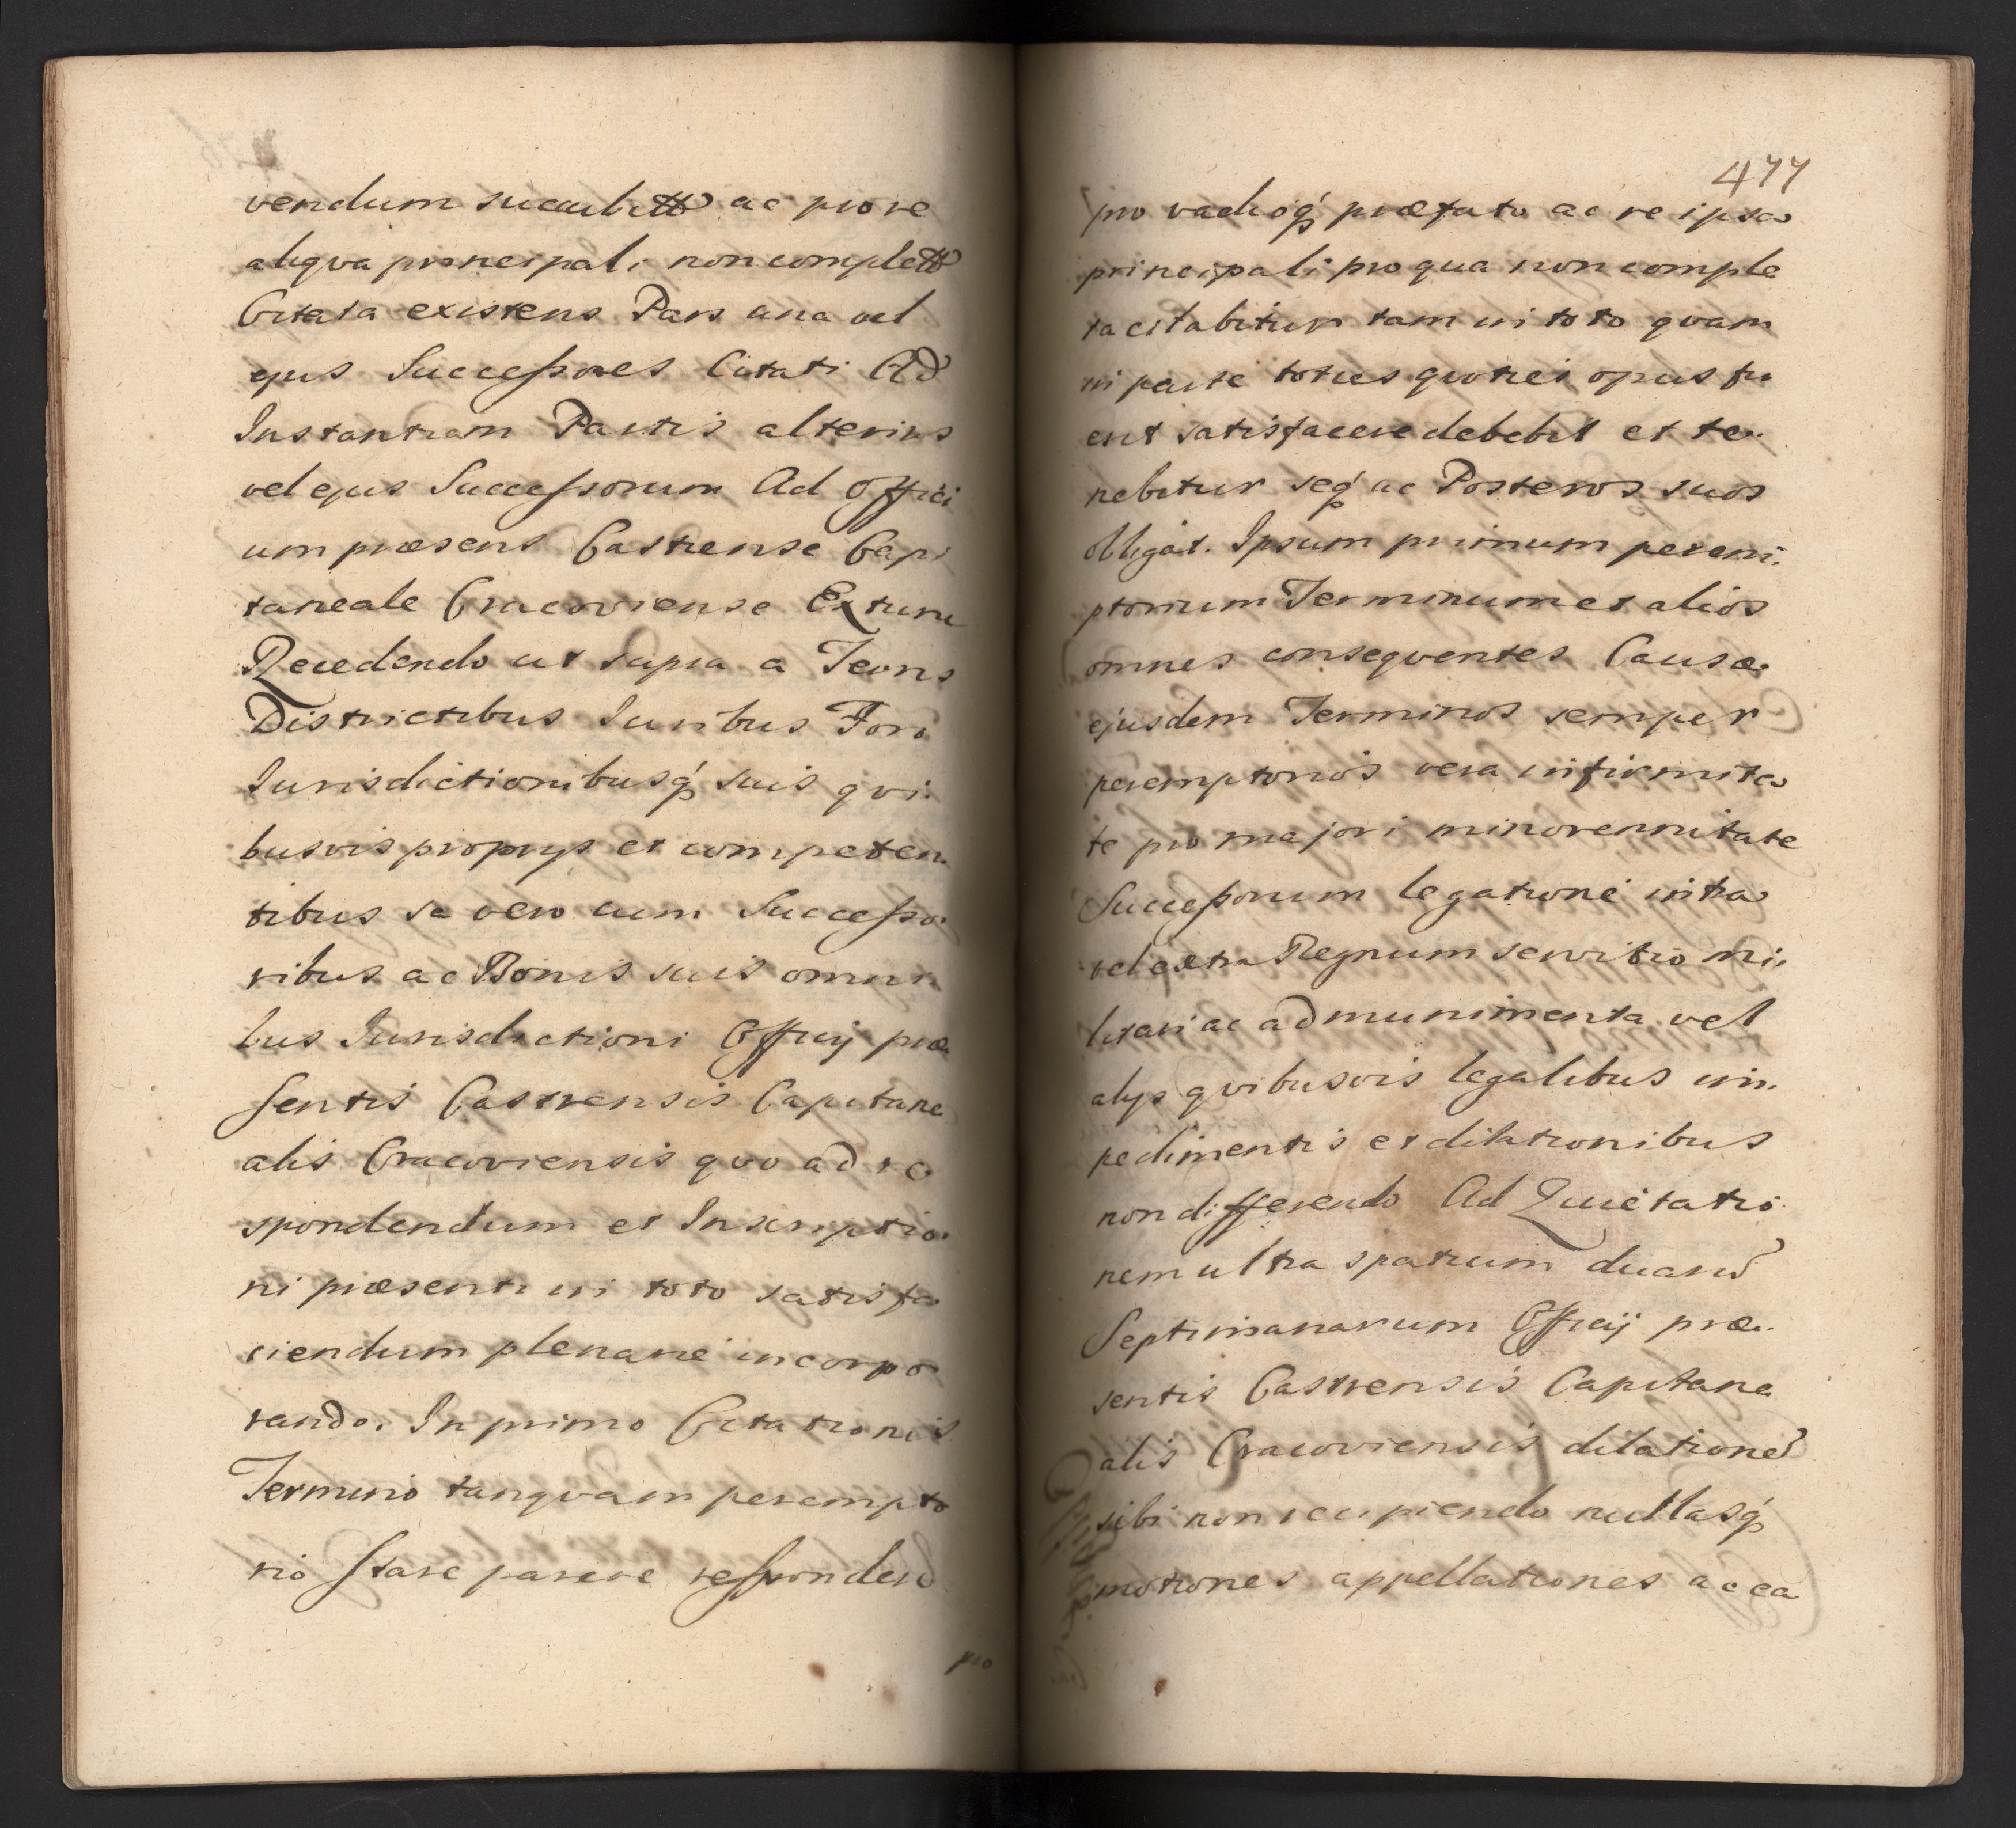 vendum succubitt ac pro re
aliqva principali non complett
Citata existens Pars una vel
ejus Successores Citati Ad
Instantiam Partis alterius
vel ejus Successorum Ad Offici
um præsens Castrense Capi
taneale Cracoviense Extunc
Recedendo ut supra a Terris
Districtibus Iuribus Foro
Iurisdictionibusq́ suis qvi
busvis proprijs et competen
tibus se vero cum Successo
ribus ac Bonis suis omni
bus Iurisdictioni Officij præ
sentis Castrensis Capitane
alis Cracoviensis qvo ad re
spondendum et Inscriptio
ni præsenti in toto satisfa
ciendum plenarie incorpo
rando. In primo Citationis
Termino tanqvam perempto
rio stare parere responderé
pro
477
pro vadioq́ præfato ac re ipsa
principali pro qua non comple
ta citabitur tam in toto qvam
in parte toties qvoties opus fu
erit satisfacere debebit et te
nebitur seq́ ac Posteros suos
obligat. Ipsum primum perem
ptorium Terminum et alios
omnes conseqventes Causæ
ejusdem Terminos semper
peremptorios vera infirmita
te pro majori minorennitate
Successorum legatione intra
vel extra Regnum servitio mi
litari ac ad munimenta vel
alijs qvibusvis legalibus im
pedimentis et dilationibus
non differendo Ad Quietatio
nem ultra spatium duarū
Septimanarum Officij præ
sentis Castrensis Capitane
alis Cracoviensis dilationē
sibi non recipiendo nullasq́
motiones appellationes ac ea